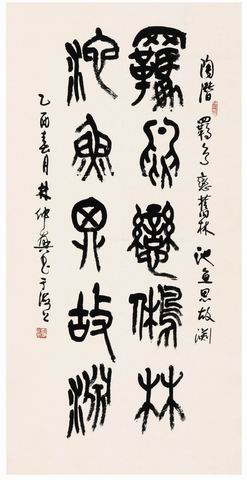 陶潛 羈鳥戀舊林 池魚思故渊
羈鳥戀舊林
池魚思故淵
乙酉春月 林仲興書于海上